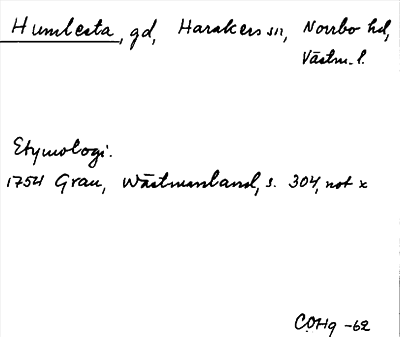 Humlesta, gd, Harakers sn, Norrbo hd,
Västm. l.
Etymologi.
1754 Grau, Wästmanland, s. 304, not x
COHg -62